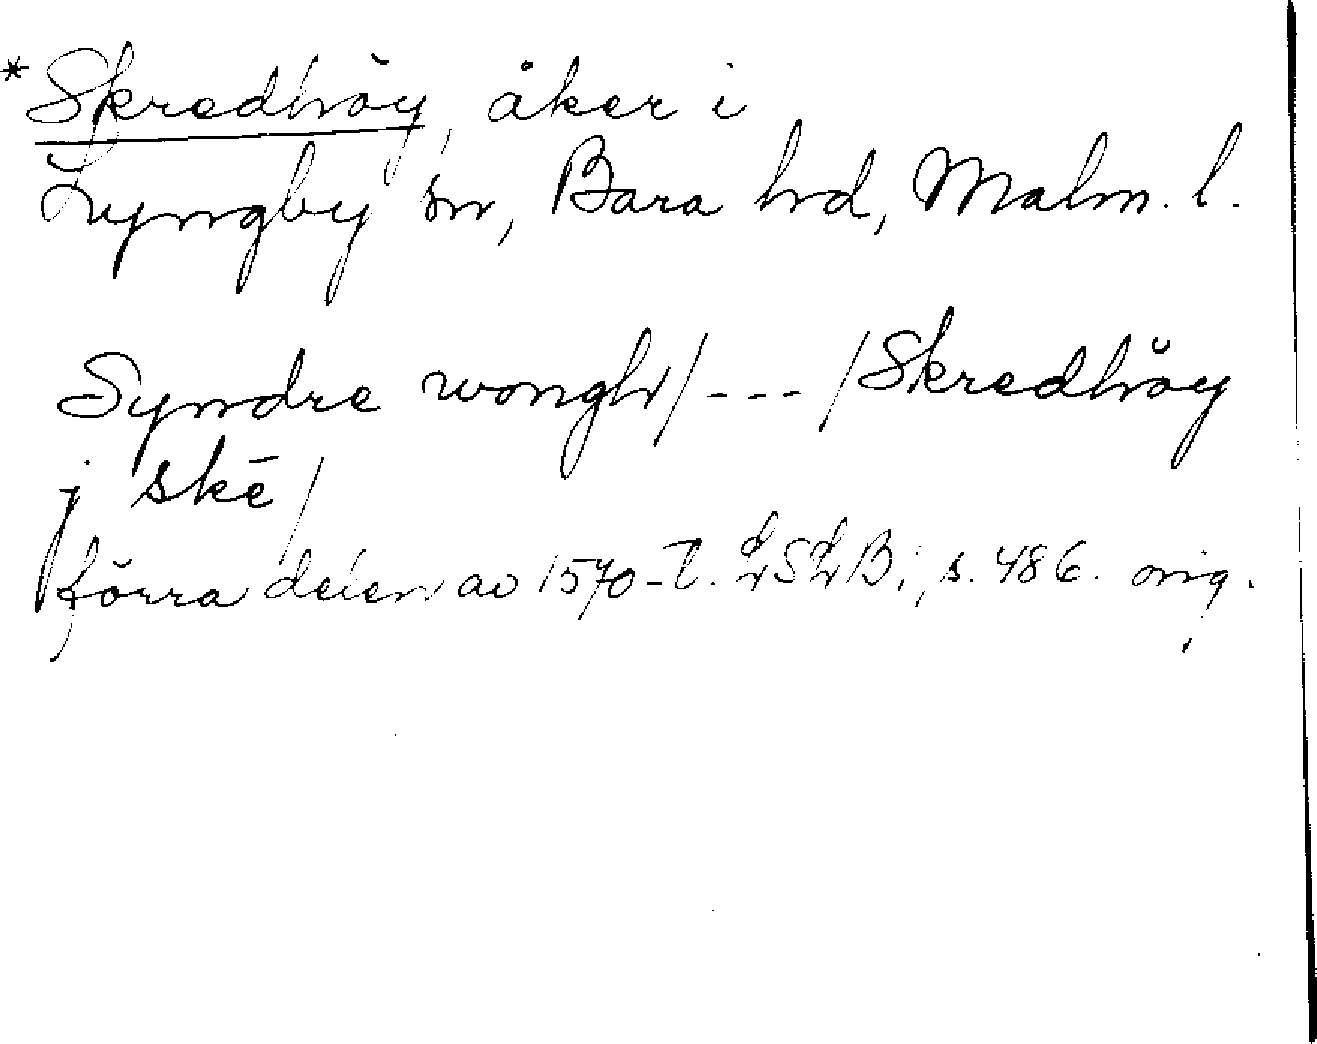 *Skredhöy, åker i
Lyngby sn, Bara hd, Malm. l.
Syndre wongh/---/Skredhöy
j skē/
förra delen av 1570-t. LSLB, s. 486. orig.